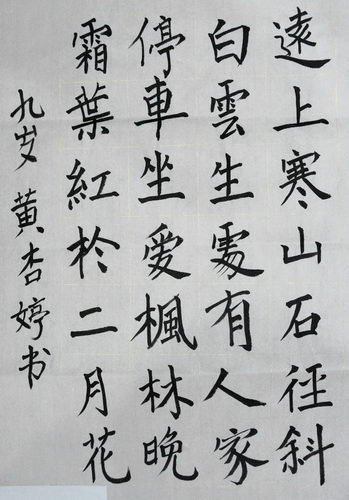 遠上寒山石徑斜
白雲生處有人家
停車坐愛楓林晚
霜葉紅於二月花
九岁 黄杏婷书